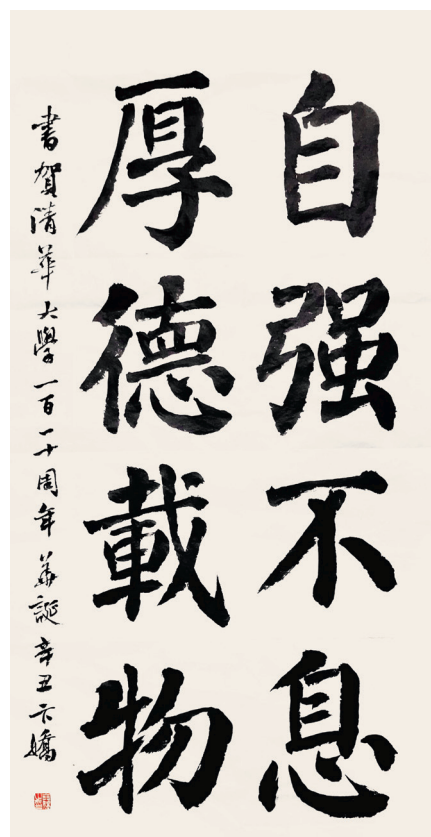 自强不息
厚德載物
書賀清華大學一百一十周年華誕辛丑卞嬌